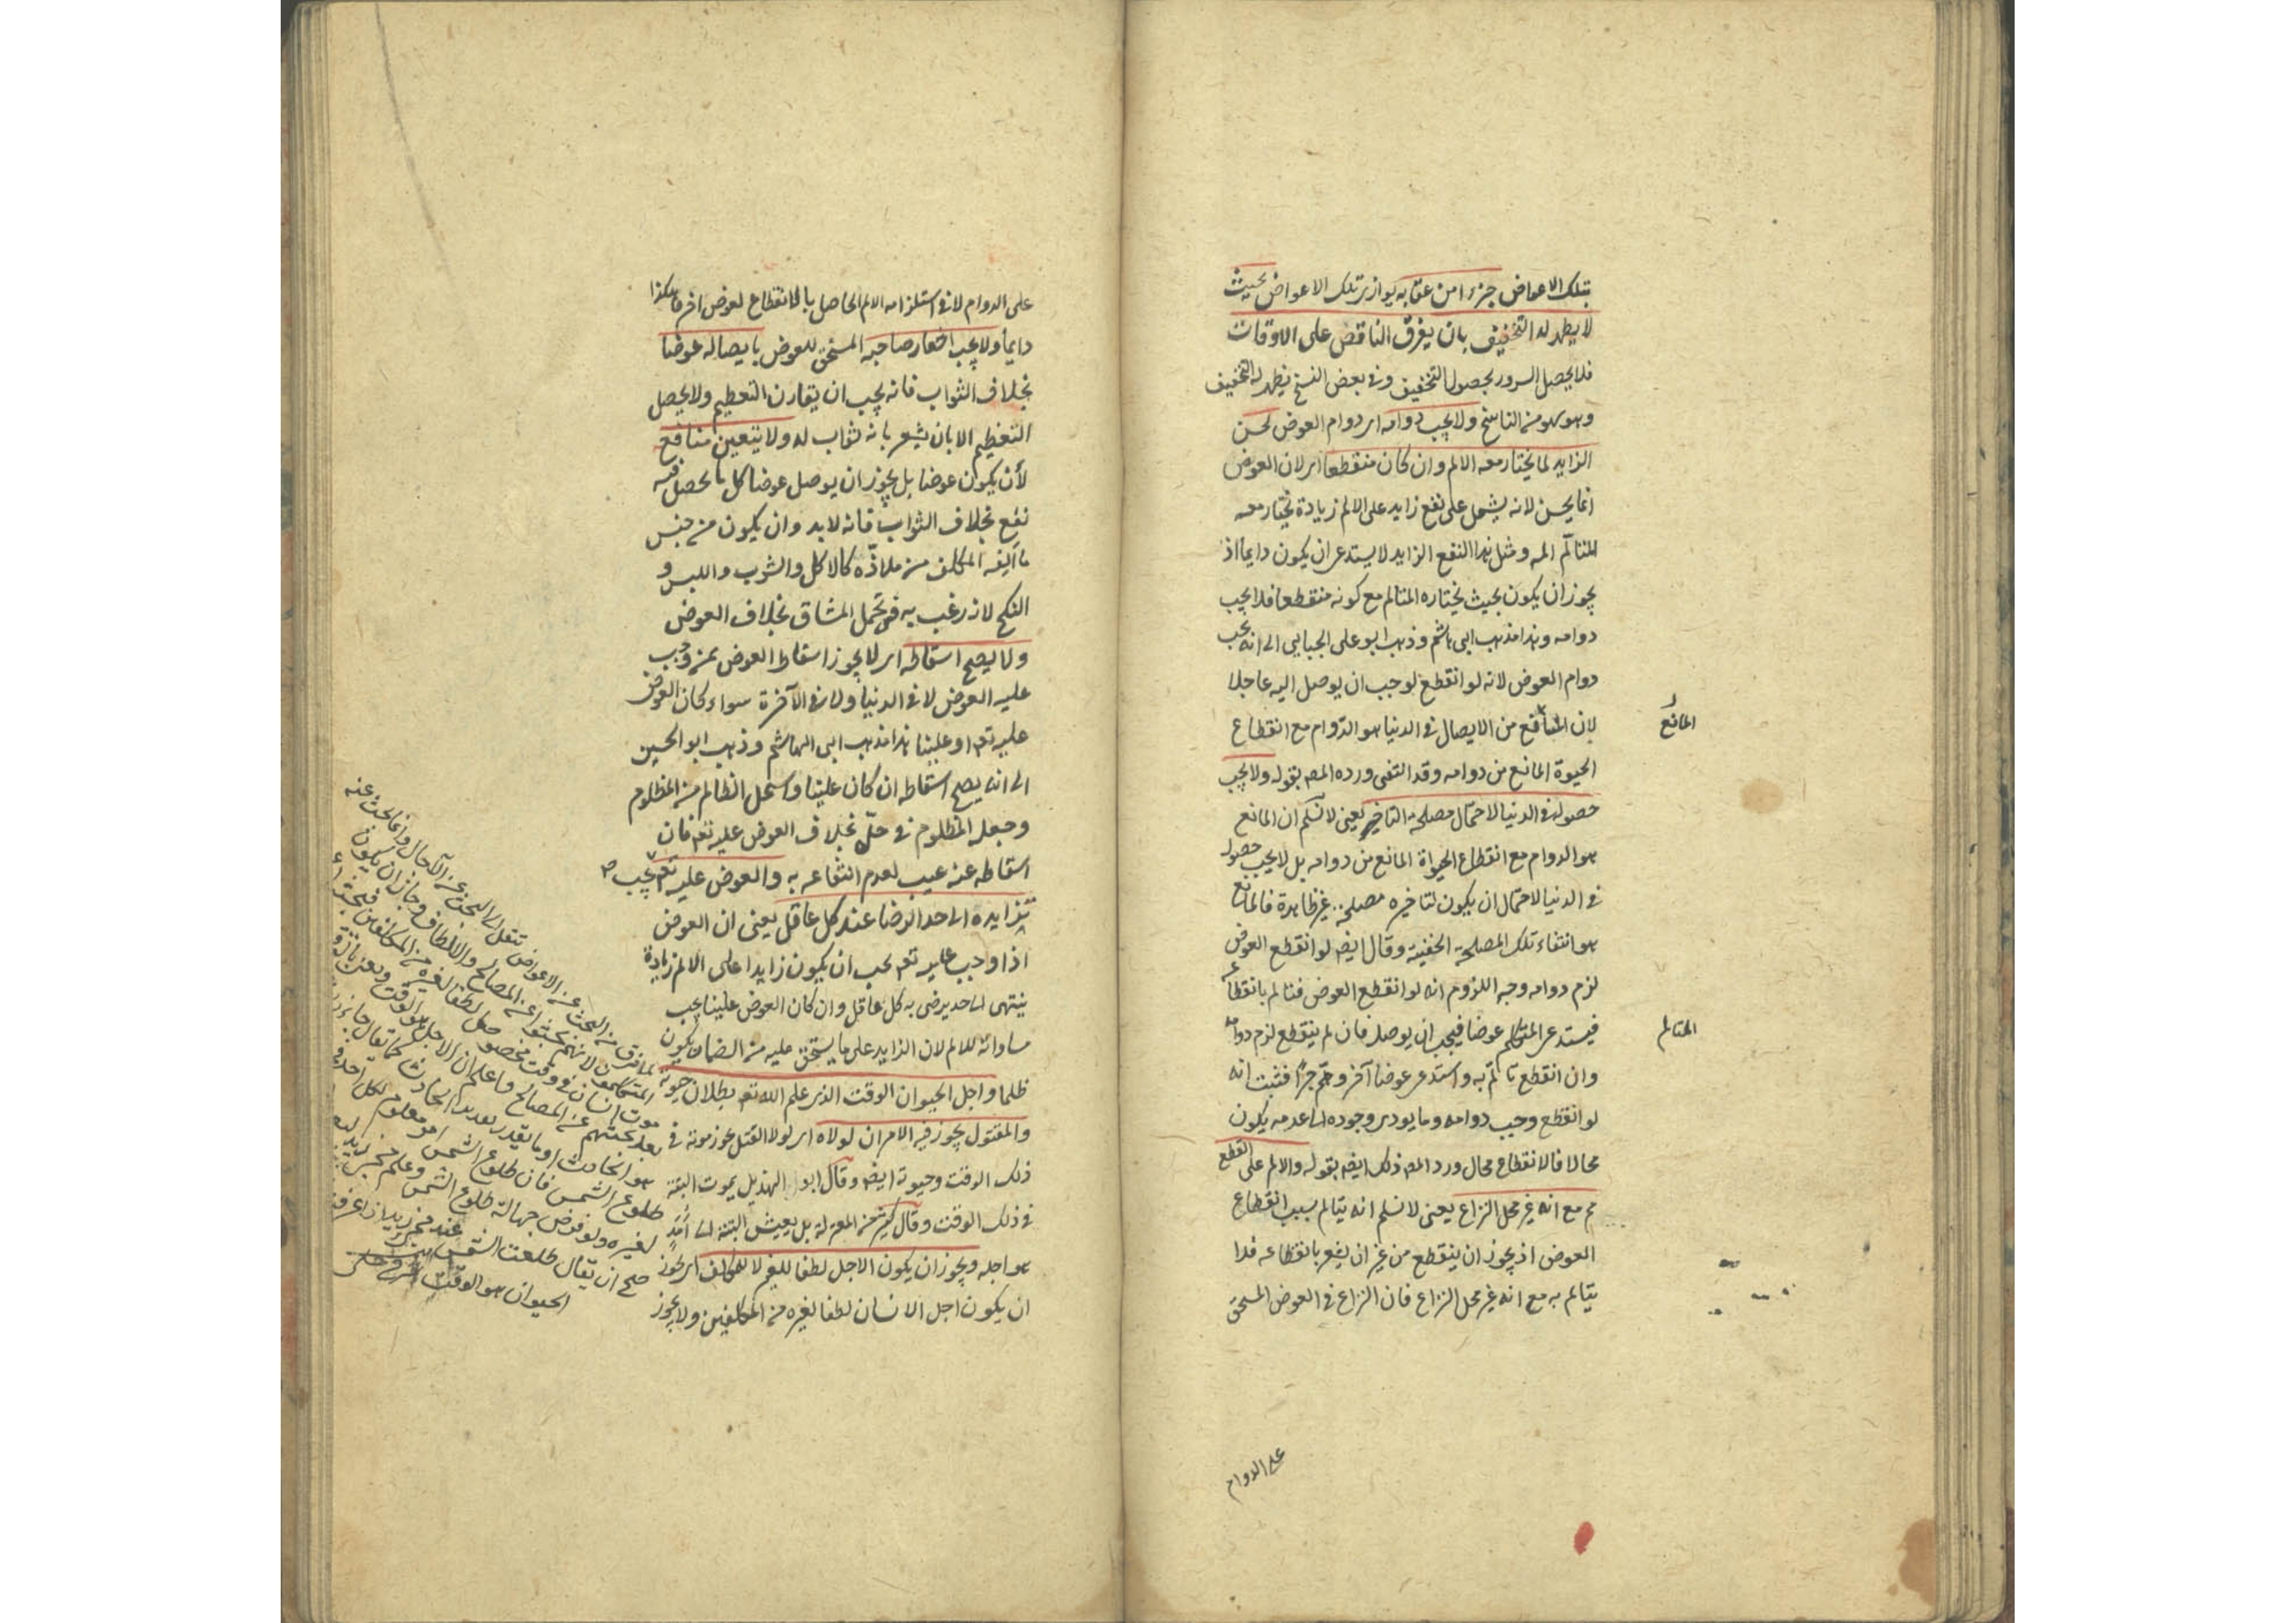 بتلك الاعواض جزءا من عقابه يوازى تلك الاعواض بحيث
لا يظهر له التخفيف بان يفرق الناقص على الاوقات
فلا يحصل السرور بحصول التخفيف وفى بعض النسخ يظهر له التخفيف
وهو سهو من الناسخ ولا يجب دوامه اى دوام العوض لحسن
الزايد لما يختار معه الالم وان كان منقطعا اى لان العوض
انما يحسن لانه يشمل على نفع زايد على الالم زيادة يختار معه
المتالم الم ومثل هذا النفع الزايد لا يستدعى ان يكون دايما اذ
يجوز ان يكون بحيث يختاره المتالم مع كونه منقطعا فلا يجب
دوامه وهذا مذهب ابى هاشم وذهب ابو على الجبايى الى انه يجب
دوام العوض لانه لو انقطع لوجب ان يوصل اليه عاجلا
لان المانع من الايصال فى الدنيا هو الدوام مع انقطاع
المانع
الحيوة المانع من دوامه وقد انتفى ورده المص بقوله ولا يجب
حصوله فى الدنيا لاحتمال مصلحة التاخير يعنى لا نسلم ان المانع
هو الدوام مع انقطاع الحيواة المانع من دوامه بل لا يجب حصوله
فى الدنيا لاحتمال ان يكون لتاخيره مصلحة غير ظاهرة فالمانع
هو انتفاء تلك المصلحة الخفية وقال ايضا لو انقطع العوض
لزم دوامه وجه اللزوم انه لو انقطع العوض فتالم بانقطاعه
فيستدعى المتالم عوضا فيجب ان يوصل فان لم ينقطع لزم دوامه
المتالم
وان انقطع تالم به واستدعى عوضا آخر وهلم جرا فثبت انه
لو انقطع وجب دوامه وما يودى وجوده الى عدمه يكون
محالا فالانقطاع محال ورد المص ذلك ايضا بقوله والالم على القطع
مم مع انه غير محل النزاع يعنى لا نسلم انه يتالم بسبب انقطاع
العوض اذ يجوز ان ينقطع من غير ان يشعر بانقطاعه فلا
يتالم به مع انه غير محل النزاع فان النزاع فى العوض المستحق
على الدوام
على الدوام لا فى استلزامه الالم الحاصل بالانقطاع لعوض اخر هكذا
دايما ولا يجب اشعار صاحبه المستحق للعوض بايصاله عوضا
بخلاف الثواب فانه يجب ان يقارن التعظيم ولا يحصل
التعظيم الا بان يشعر بانه ثواب له ولا يتعين منافع
لأن يكون عوضا بل يجوز ان يوصل عوضا كل ما يحصل فيه
نفع بخلاف الثواب فانه لا بد وان يكون من جنس
ما ألفه المكلف من ملاذه كالاكل والشرب واللبس و
النكح لانه رغب به فى تحمل المشاق بخلاف العوض
ولا يصح اسقاطه اى لا يجوز اسقاط العوض ممن وجب
عليه العوض لا فى الدنيا ولا فى الآخرة سواء كان العوض
عليه تعالى او علينا هذا مذهب ابى الهاشم وذهب ابو الحسين
الى انه يصح اسقاطه ان كان علينا واستحل الظالم من المظلوم
وجعله المظلوم فى حلّ بخلاف العوض عليه تعالى فان
اسقاطه عنه عيب لعدم انتفاعه به والعوض عليه تعالى يجب
تزايده الى حد الرضا عند كل عاقل يعنى ان العوض
اذا وجب عليه تعالى يجب ان يكون زايدا على الالم زيادة
ينتهى الى حد يرضى به كل عاقل وان كان العوض علينا يجب
مساواته للالم لان الزايد على ما يستحق عليه من الضمان يكون
ظلما واجل الحيوان الوقت الذى علم الله تعالى بطلان حيوته
والمقتول يجوز فيه الامران لولاه اى لولا القتل يجوز موته فى
ذلك الوقت وحيوته ايضا وقال ابو الهذيل يموت البتة
فى ذلك الوقت وقال كثير من المعتزلة بل يعيش البتة الى أمد
هو اجله ويجوز ان يكون الاجل لطفا للغير لا للمكلف اى يجوز
ان يكون اجل الانسان لطفا لغيره من المكلفين ولا يجوز
لما فرق من البحث عن الاعواض تنقل الى البحث عن الآجال وانما بحث عنه
المتكلمون لانهم بحثوا عن المصالح والالطاف وجاز ان يكون
موت انسان فى وقت مخصوص لطفا لغيره من المكلفين
بعد بحثهم عن المصالح واعلم ان الاجل هو الوقت
هو الحادث او ما يقدر تقدير الحادث كما يقال جاء زيد
طلوع الشمس فان طلوع الشمس امر معلوم لكل احد
لغيره ولو فرض جهالة طلوع الشمس وعلم مجئ زيد
صح ان يقال طلعت الشمس عند مجئ زيد
الحيوان هو الوقت